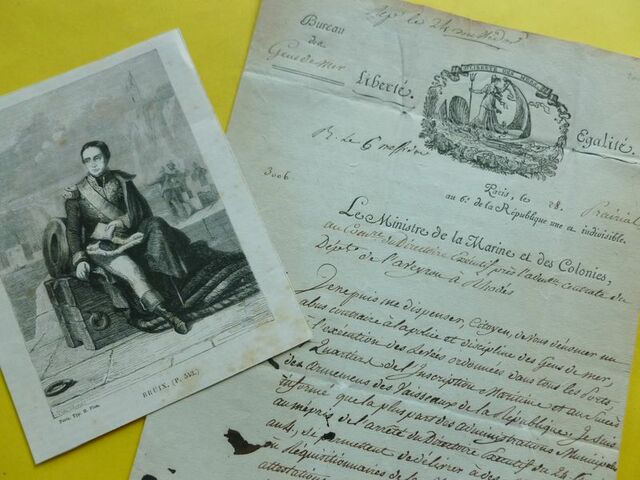 BRUIX, (P. 552.)
Paris, Typ. H. Plon.
Bureau
des
Gens de Mer
Liberté.
Egalité.
R. le 6 messidor
3006
Paris, le 28 Prairial
au 6e. de la République une et indivisible.
Le Ministre de la Marine et des Colonies,
au Comre. du Directoire Exécutif près l'admon. centrale du
Dépt. de l'aveyron à Rhodès
Je ne puis me dispenser, Citoyen, de vous dénoncer un
abus contraire à la police et discipline des Gens de mer,
l'exécution des Levées ordonnées dans tous les Ports,
Quartiers de l'Inscription Maritime et aux Succès
des armemens des Vaisseaux de la République. Je suis
informé que la plus part des administrations Municipales
au mépris de l'arrêté du Directoire Exécutif du 24
se permettent de délivrer à des
ou Réquisitionnaires de la
attestations